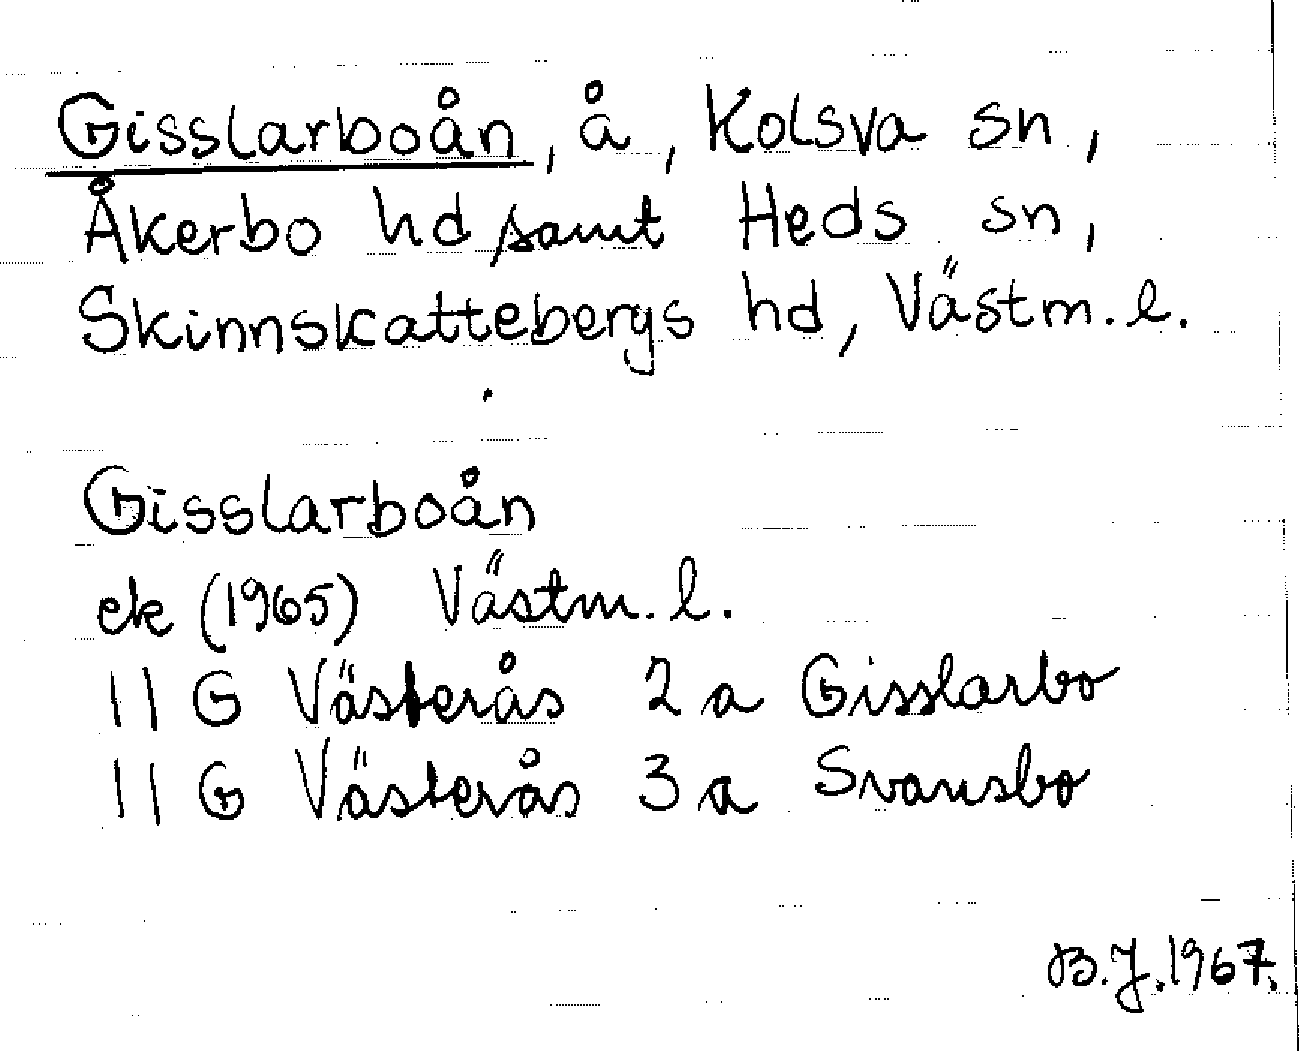 Gisslarboån, å, Kolsva sn,
Åkerbo hd samt Heds sn,
Skinnskattebergs hd, Västm. l.
Gisslarboån
ek (1965) Västm. l.
11 G Västerås 2 a Gisslarbo
11 G Västerås 3 a Svansbo
B.J. 1967.